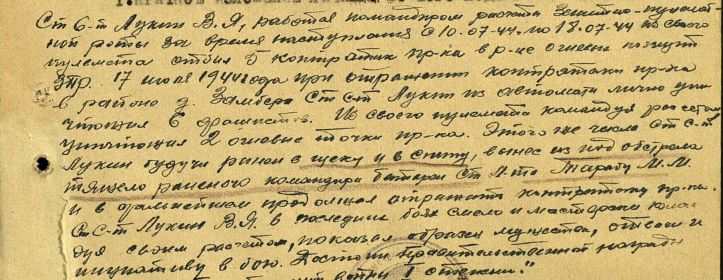 Ст С-т Лукин В.Я. работая командиром расчета зенитно-пулемет-
ной роты за время наступления с 10-07-44 по 18.07-44 из своего
пулемета отбил 5 контратак пр-ка в р-не
17 июля 1944 года при отражении контратаки пр-ка
в районе д. Замбери Ст С-т Лукин из автомата лично уни-
чтожил 6 фашистов. Из своего пулемета командуя расчетом
уничтожил 2 огневые точки пр-ка. Этого же числа Ст С-т
Лукин будучи ранен в щеку и в спину, вынес из под обстрела
тяжело раненого командира батареи Ст Л-та Тарабу М.М.
и в дальнейшем продолжал отражать контратаку пр-ка.
Ст С-т Лукин В.Я. в последних боях смело и мастерски коман
дуя своим расчетом, показал образец мужества, отваги и
инициативу в бою. Достоин правительственной награды
войны I степени."